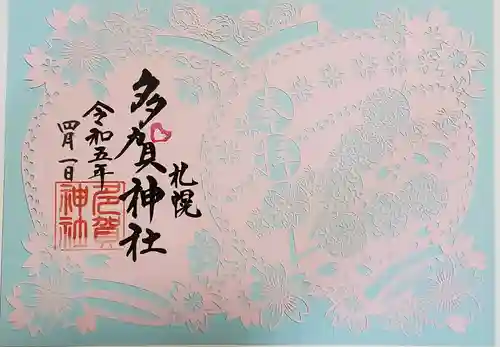 札幌
多賀神社
令和五年
四月一日
多賀
神社